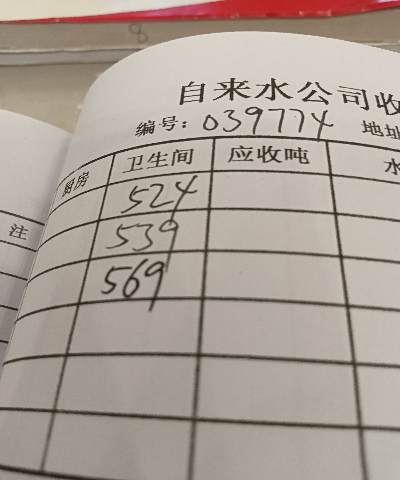 8
自来水公司收
编号：039774 地址
厨房 卫生间 应收吨 水
524
539
569
注